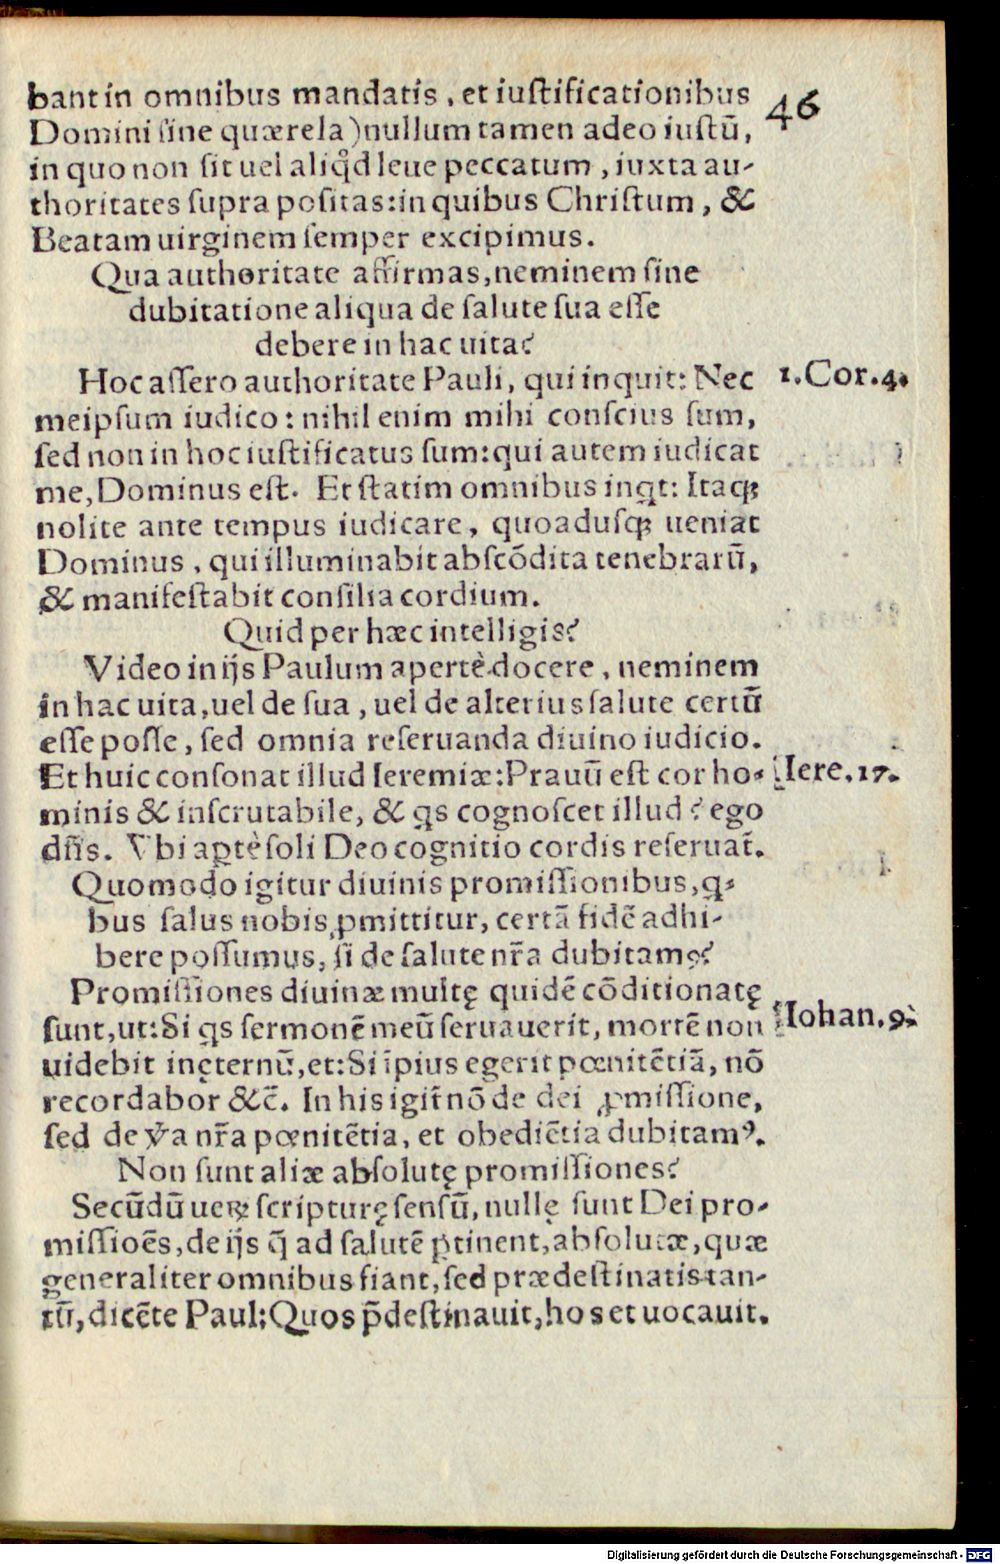 46
bant in omnibus mandatis, et iuſtificationibus
Domini ſine quærela) nullum tamen adeo iuſtū,
in quo non ſit uel aliqd leue peccatum, iuxta au-
thoritates ſupra poſitas: in quibus Chriſtum, &
Beatam uirginem ſemper excipimus.
Qua authoritate affirmas, neminem ſine
dubitatione aliqua de ſalute ſua eſſe
debere in hac uita?
Hoc aſſero authoritate Pauli, qui inquit: Nec
1. Cor. 4.
meipſum iudico: nihil enim mihi conſcius ſum,
ſed non in hoc iuſtificatus ſum: qui autem iudicat
me, Dominus eſt. Et ſtatim omnibus inꝗt: Itaqꝫ
nolite ante tempus iudicare, quoaduſqꝫ ueniat
Dominus, qui illuminabit abſcōdita tenebrarū,
& manifeſtabit conſilia cordium.
Quid per hæc intelligis?
Video in ijs Paulum apertè docere, neminem
in hac uita, uel de ſua, uel de alterius ſalute certū
eſſe poſſe, ſed omnia reſeruanda diuino iudicio.
Et huic conſonat illud Ieremiæ: Prauū eſt cor ho-
Iere. 17.
minis & inſcrutabile, & ꝗs cognoſcet illud? ego
dn̄s. Vbi aꝑtè ſoli Deo cognitio cordis reſeruat̄.
Quomodo igitur diuinis promiſſionibus, ꝗ-
bus ſalus nobis ꝓmittitur, certā fidē adhi-
bere poſſumus, ſi de ſalute nr̄a dubitamꝰ?
Promiſſiones diuinæ multę quidē cōditionatę
ſunt, ut: Si ꝗs ſermonē meū ſeruauerit, mortē non
Iohan. 9.
uidebit inęternū, et: Si īpius egerit pœnitētiā, nō
recordabor &c̄. In his igit̄ nō de dei ꝓmiſſione,
ſed de v̄a nr̄a pœnitētia, et obediētia dubitamꝰ.
Non ſunt aliæ abſolutę promiſſiones?
Secūdū ueꝝ ſcripturę ſenſū, nullę ſunt Dei pro-
miſſioēs, de ijs q̄ ad ſalutē ꝑtinent, abſolutæ, quæ
generaliter omnibus fiant, ſed prædeſtinatis tan-
tū, dicēte Paul: Quos p̄deſtinauit, hos et uocauit.
Digitalisierung gefördert durch die Deutsche Forschungsgemeinschaft - DFG